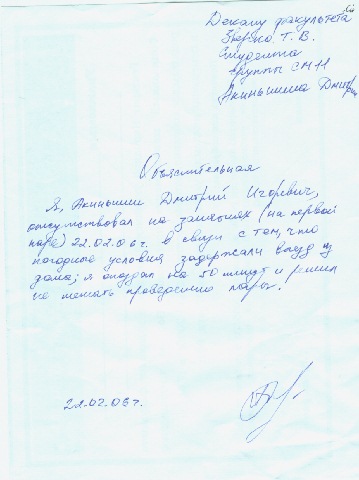 Декану факультета
Зверко Т. В.
Студента
группы СМ11
Акиньшина Дмитрия
Объяснительная
Я, Акиньшин Дмитрий Игоревич,
отсутствовал на занятиях (на первой
паре) 22.02.06 г. в связи с тем, что
погодные условия задержали выезд из
дома; я опоздал на 50 минут и решил
не мешать проведению пары.
22.02.06 г.